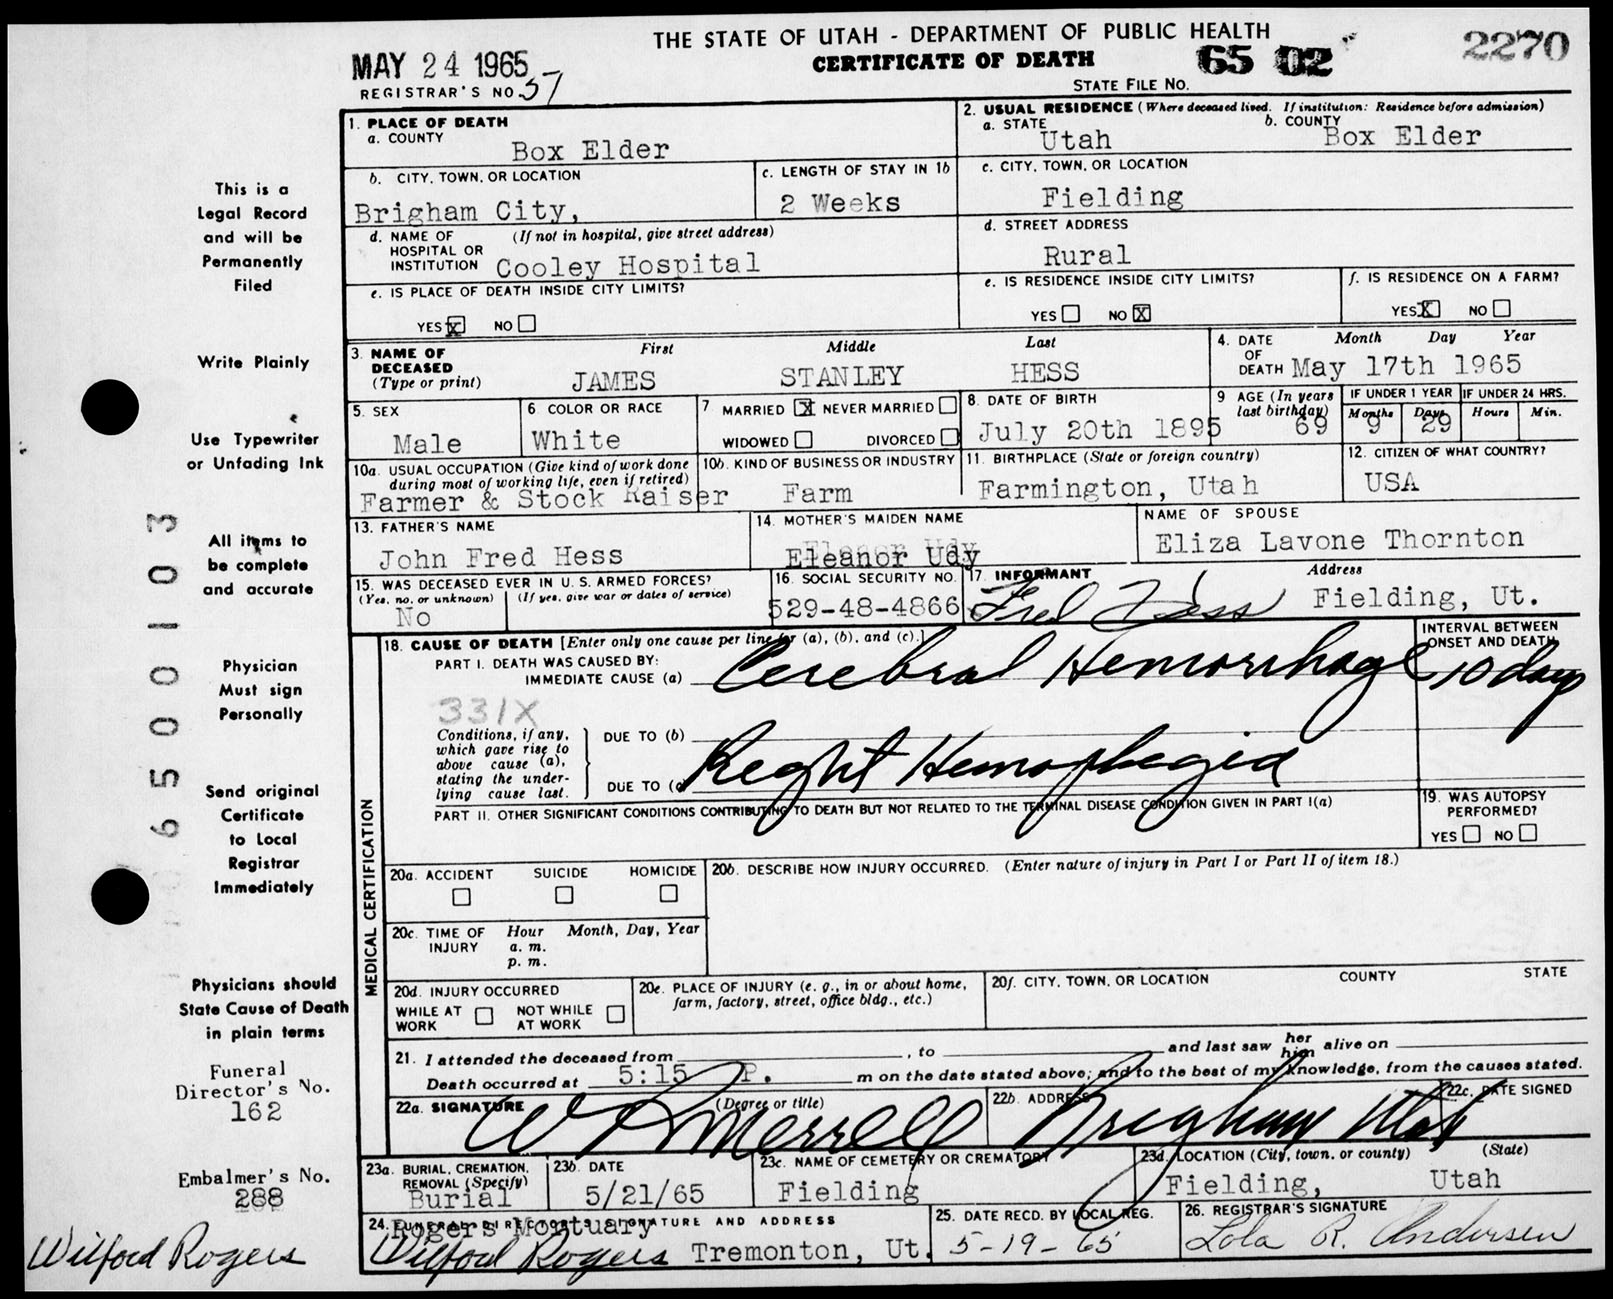 THE STATE OF UTAH - DEPARTMENT OF PUBLIC HEALTH
CERTIFICATE OF DEATH
MAY 24 1965
65 02
2270
REGISTRAR'S NO. 57
STATE FILE NO.
This is a
Legal Record
and will be
Permanently
Filed
Write Plainly
Use Typewriter
or Unfading Ink
All items to
be complete
and accurate
Physician
Must sign
Personally
Send original
Certificate
to Local
Registrar
Immediately
Physicians should
State Cause of Death
in plain terms
Funeral
Director's No.
162
Embalmer's No.
288
Wilford Rogers
6500103
1. PLACE OF DEATH
a. COUNTY
Box Elder
2. USUAL RESIDENCE (Where deceased lived. If institution: Residence before admission)
a. STATE Utah
b. COUNTY Box Elder
b. CITY, TOWN, OR LOCATION
Brigham City,
c. LENGTH OF STAY IN 1b
2 Weeks
c. CITY, TOWN, OR LOCATION
Fielding
d. NAME OF HOSPITAL OR INSTITUTION (If not in hospital, give street address)
Cooley Hospital
d. STREET ADDRESS
Rural
e. IS PLACE OF DEATH INSIDE CITY LIMITS?
YES X NO
e. IS RESIDENCE INSIDE CITY LIMITS?
YES NO X
f. IS RESIDENCE ON A FARM?
YES X NO
3. NAME OF DECEASED (Type or print)
First Middle Last
JAMES STANLEY HESS
4. DATE OF DEATH
Month Day Year
May 17th 1965
5. SEX
Male
6 COLOR OR RACE
White
7 MARRIED X NEVER MARRIED
WIDOWED DIVORCED
8. DATE OF BIRTH
July 20th 1895
9 AGE (In years last birthday)
69
IF UNDER 1 YEAR
Months Days
9 29
IF UNDER 24 HRS.
Hours Min.
10a. USUAL OCCUPATION (Give kind of work done during most of working life, even if retired)
Farmer & Stock Raiser
10b. KIND OF BUSINESS OR INDUSTRY
Farm
11. BIRTHPLACE (State or foreign country)
Farmington, Utah
12. CITIZEN OF WHAT COUNTRY?
USA
13. FATHER'S NAME
John Fred Hess
14. MOTHER'S MAIDEN NAME
Eleanor Udy
NAME OF SPOUSE
Eliza Lavone Thornton
15. WAS DECEASED EVER IN U. S. ARMED FORCES?
(Yes, no, or unknown) (If yes, give war or dates of service)
No
16. SOCIAL SECURITY NO.
529-48-4866
17. INFORMANT Address
Fred Hess Fielding, Ut.
MEDICAL CERTIFICATION
18. CAUSE OF DEATH [Enter only one cause per line for (a), (b), and (c).]
INTERVAL BETWEEN ONSET AND DEATH
PART I. DEATH WAS CAUSED BY:
IMMEDIATE CAUSE (a) Cerebral Hemorrhage 10 days
331X
Conditions, if any,
which gave rise to
above cause (a),
stating the under-
lying cause last.
DUE TO (b)
Right Hemoplegia
DUE TO (c)
PART II. OTHER SIGNIFICANT CONDITIONS CONTRIBUTING TO DEATH BUT NOT RELATED TO THE TERMINAL DISEASE CONDITION GIVEN IN PART I(a)
19. WAS AUTOPSY PERFORMED?
YES NO
20a. ACCIDENT SUICIDE HOMICIDE
20b. DESCRIBE HOW INJURY OCCURRED. (Enter nature of injury in Part I or Part II of item 18.)
20c. TIME OF INJURY Hour Month, Day, Year
a. m.
p. m.
20d. INJURY OCCURRED
WHILE AT WORK NOT WHILE AT WORK
20e. PLACE OF INJURY (e. g., in or about home, farm, factory, street, office bldg., etc.)
20f. CITY, TOWN, OR LOCATION COUNTY STATE
21. I attended the deceased from , to and last saw her him alive on
Death occurred at 5:15 P. m on the date stated above; and to the best of my knowledge, from the causes stated.
22a. SIGNATURE (Degree or title)
22b. ADDRESS
22c. DATE SIGNED
Merrell
Brigham Utah
23a. BURIAL, CREMATION, REMOVAL (Specify)
Burial
23b. DATE
5/21/65
23c. NAME OF CEMETERY OR CREMATORY
Fielding
23d. LOCATION (City, town, or county) (State)
Fielding, Utah
24. FUNERAL DIRECTOR'S SIGNATURE AND ADDRESS
Rogers Mortuary
Wilford Rogers Tremonton, Ut.
25. DATE RECD. BY LOCAL REG.
5-19-65
26. REGISTRAR'S SIGNATURE
Lola R. Andersen